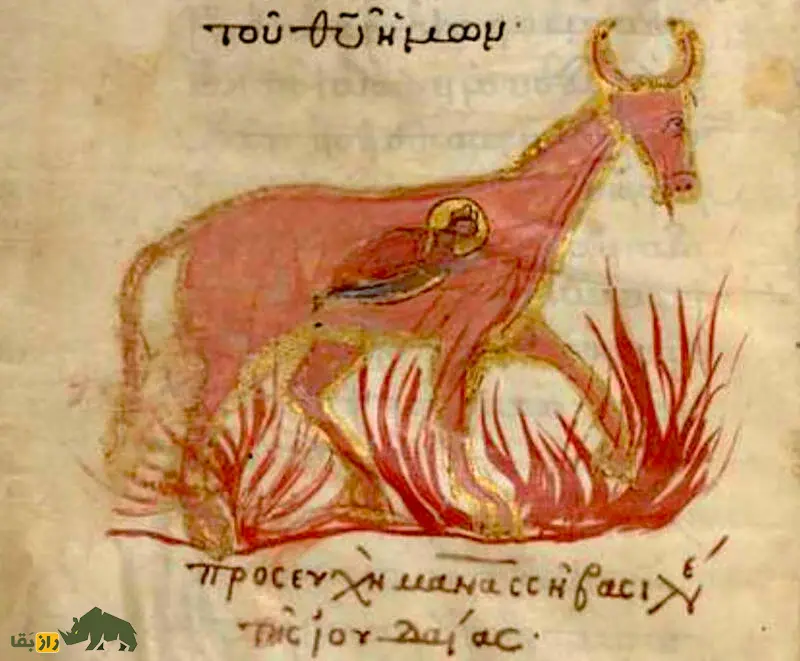 τοῦ θῦ ἡμῶν·
προσευχὴ μανασσῆ βασιλέ
τῆς ἰουδαίας·
راز بقا